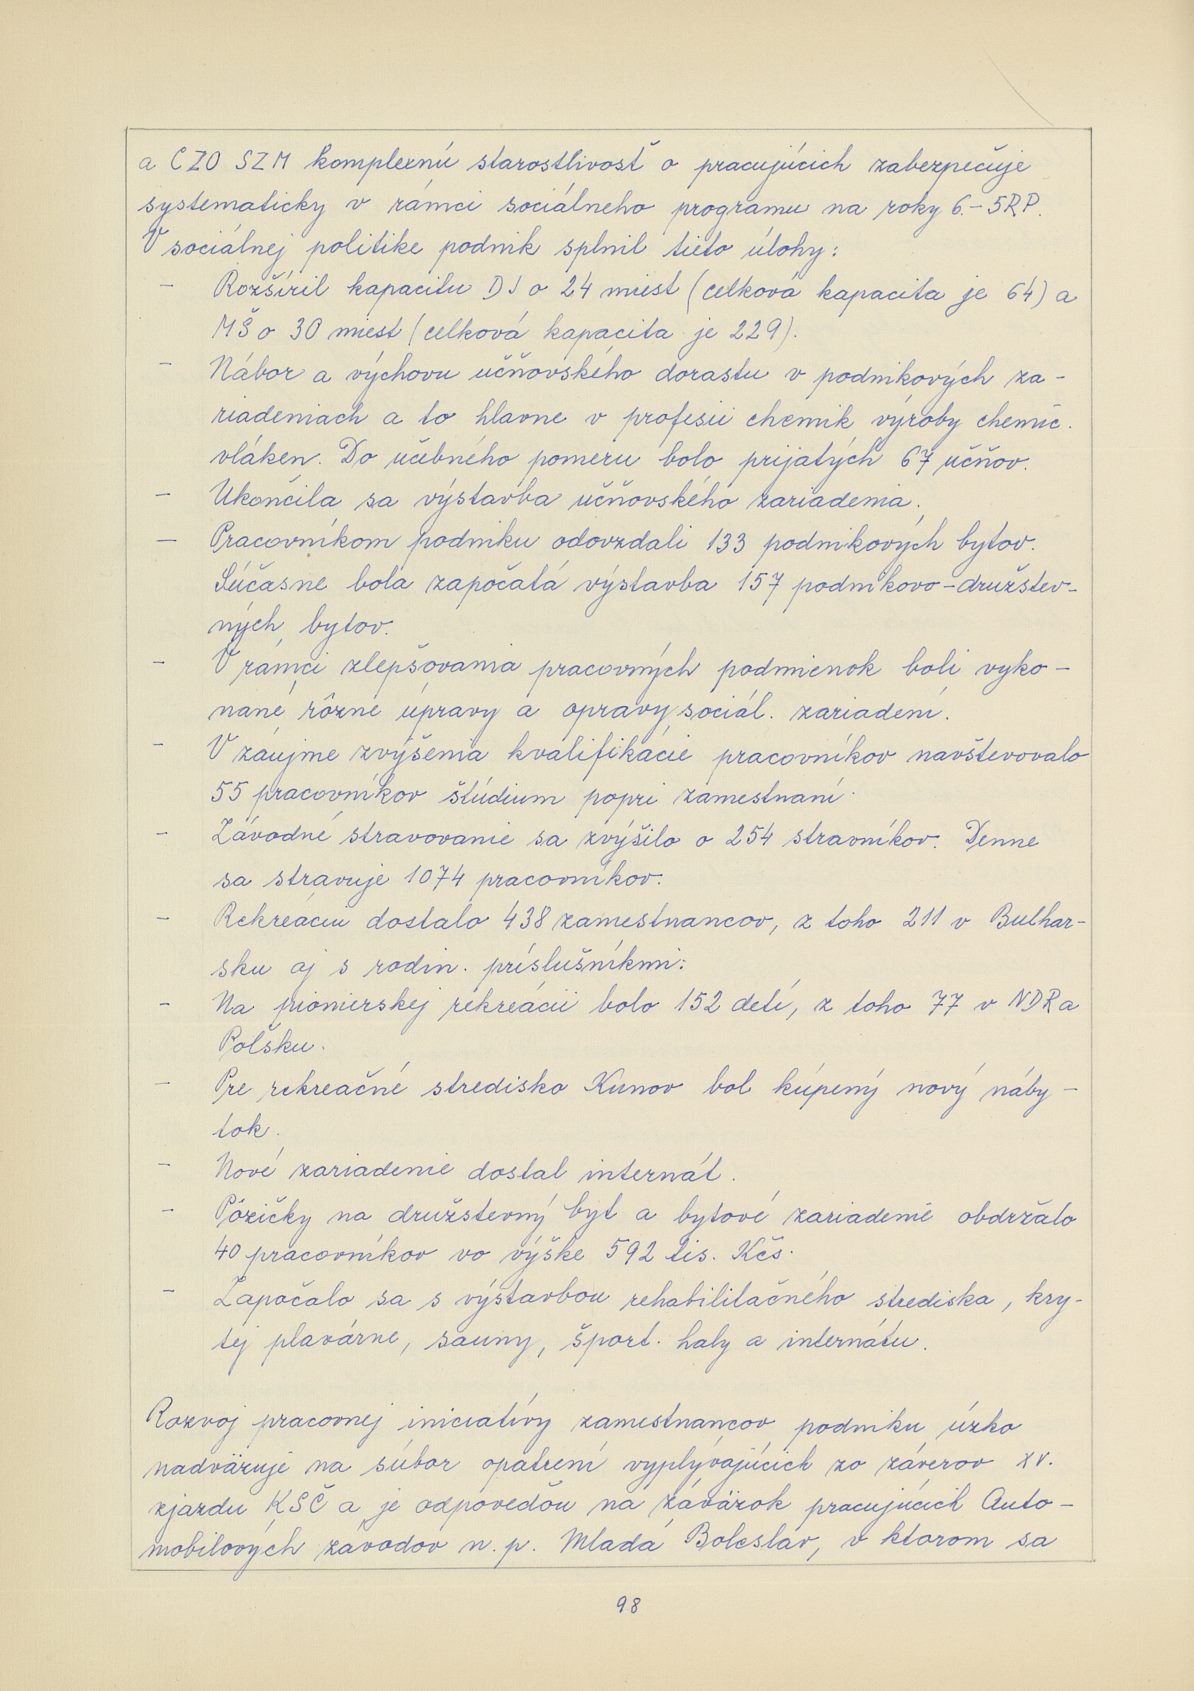 a CZO SZM komplexnú starostlivosť o pracujúcich zabezpečuje
systematicky v rámci sociálneho programu na roky 6.-5RP.
V sociálnej politike podnik splnil tieto úlohy:
- Rozšíril kapacitu DJ o 24 miest (celková kapacita je 64) a
MŠ o 30 miest (celková kapacita je 229).
- Nábor a výchovu učňovského dorastu v podnikových za-
riadeniach a to hlavne v profesii chemik výroby chemic.
vláken. Do učebného pomeru bolo prijatých 67 učňov.
- Ukončila sa výstavba učňovského zariadenia.
- Pracovníkom podniku odovzdali 133 podnikových bytov.
Súčasne bola započatá výstavba 157 podnikovo-družstev-
ných bytov.
- V rámci zlepšovania pracovných podmienok boli vyko-
nané rôzne úpravy a opravy sociál. zariadení.
- V záujme zvýšenia kvalifikácie pracovníkov navštevovalo
55 pracovníkov štúdium popri zamestnaní.
- Závodné stravovanie sa zvýšilo o 254 stravníkov. Denne
sa stravuje 1074 pracovníkov.
- Rekreáciu dostalo 438 zamestnancov, z toho 211 v Bulhar-
sku aj s rodin. príslušníkmi.
- Na pionierskej rekreácii bolo 152 detí, z toho 77 v NDR a
Poľsku.
- Pre rekreačné stredisko Kunov bol kúpený nový náby-
tok.
- Nové zariadenie dostal internát.
- Pôžičky na družstevný byt a bytové zariadenie obdržalo
40 pracovníkov vo výške 592 tis. Kčs.
- Započalo sa s výstavbou rehabilitačného strediska, kry-
tej plavárne, sauny, šport. haly a internátu.
Rozvoj pracovnej iniciatívy zamestnancov podniku úzko
nadväzuje na súbor opatrení vyplývajúcich zo záverov XV.
zjazdu KSČ a je odpoveďou na záväzok pracujúcich Auto-
mobilových závodov n. p. Mladá Boleslav, v ktorom sa
98